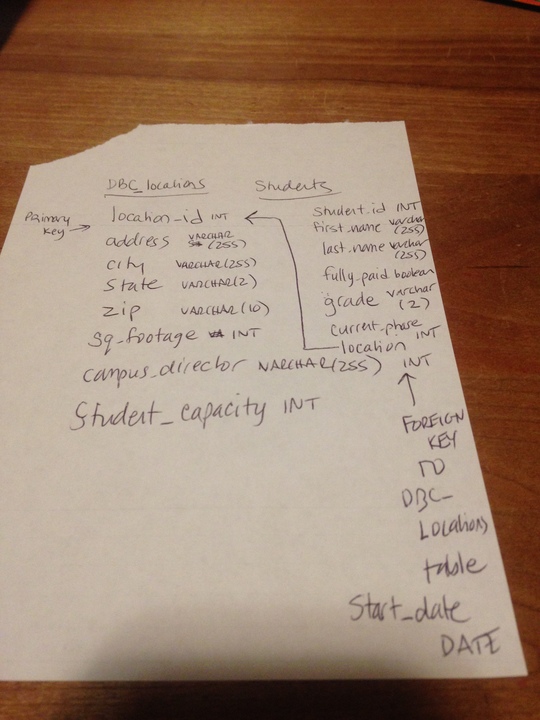 DBC_locations
Primary
Key
location_id INT
address VARCHAR
(255)
city VARCHAR(255)
State VARCHAR(2)
zip VARCHAR(10)
sq_footage INT
campus_director VARCHAR(255)
Student_capacity INT
Students
Student_id INT
first_name varchar
(255)
last_name varchar
(255)
fully_paid boolean
grade varchar
(2)
current_phase
INT
location
INT
FOREIGN
KEY
TO
DBC_
Locations
table
Start_date
DATE